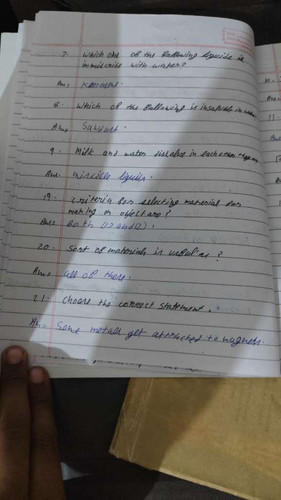 7. Which one of the following liquids is
immiscible with water?
Ans, Kerosene.
8. Which of the following is insoluble in water
Ans, Sawdust.
9. Milk and water dissolve in each other
Ans. miscible liquids.
19. criteria for selecting material for
making an object are?
Ans: both (1) and (2).
20. Sort of materials in useful as?
Ans, all of these.
21. Choose the correct statement.
An. Some metals get attracted to magnets.
11.